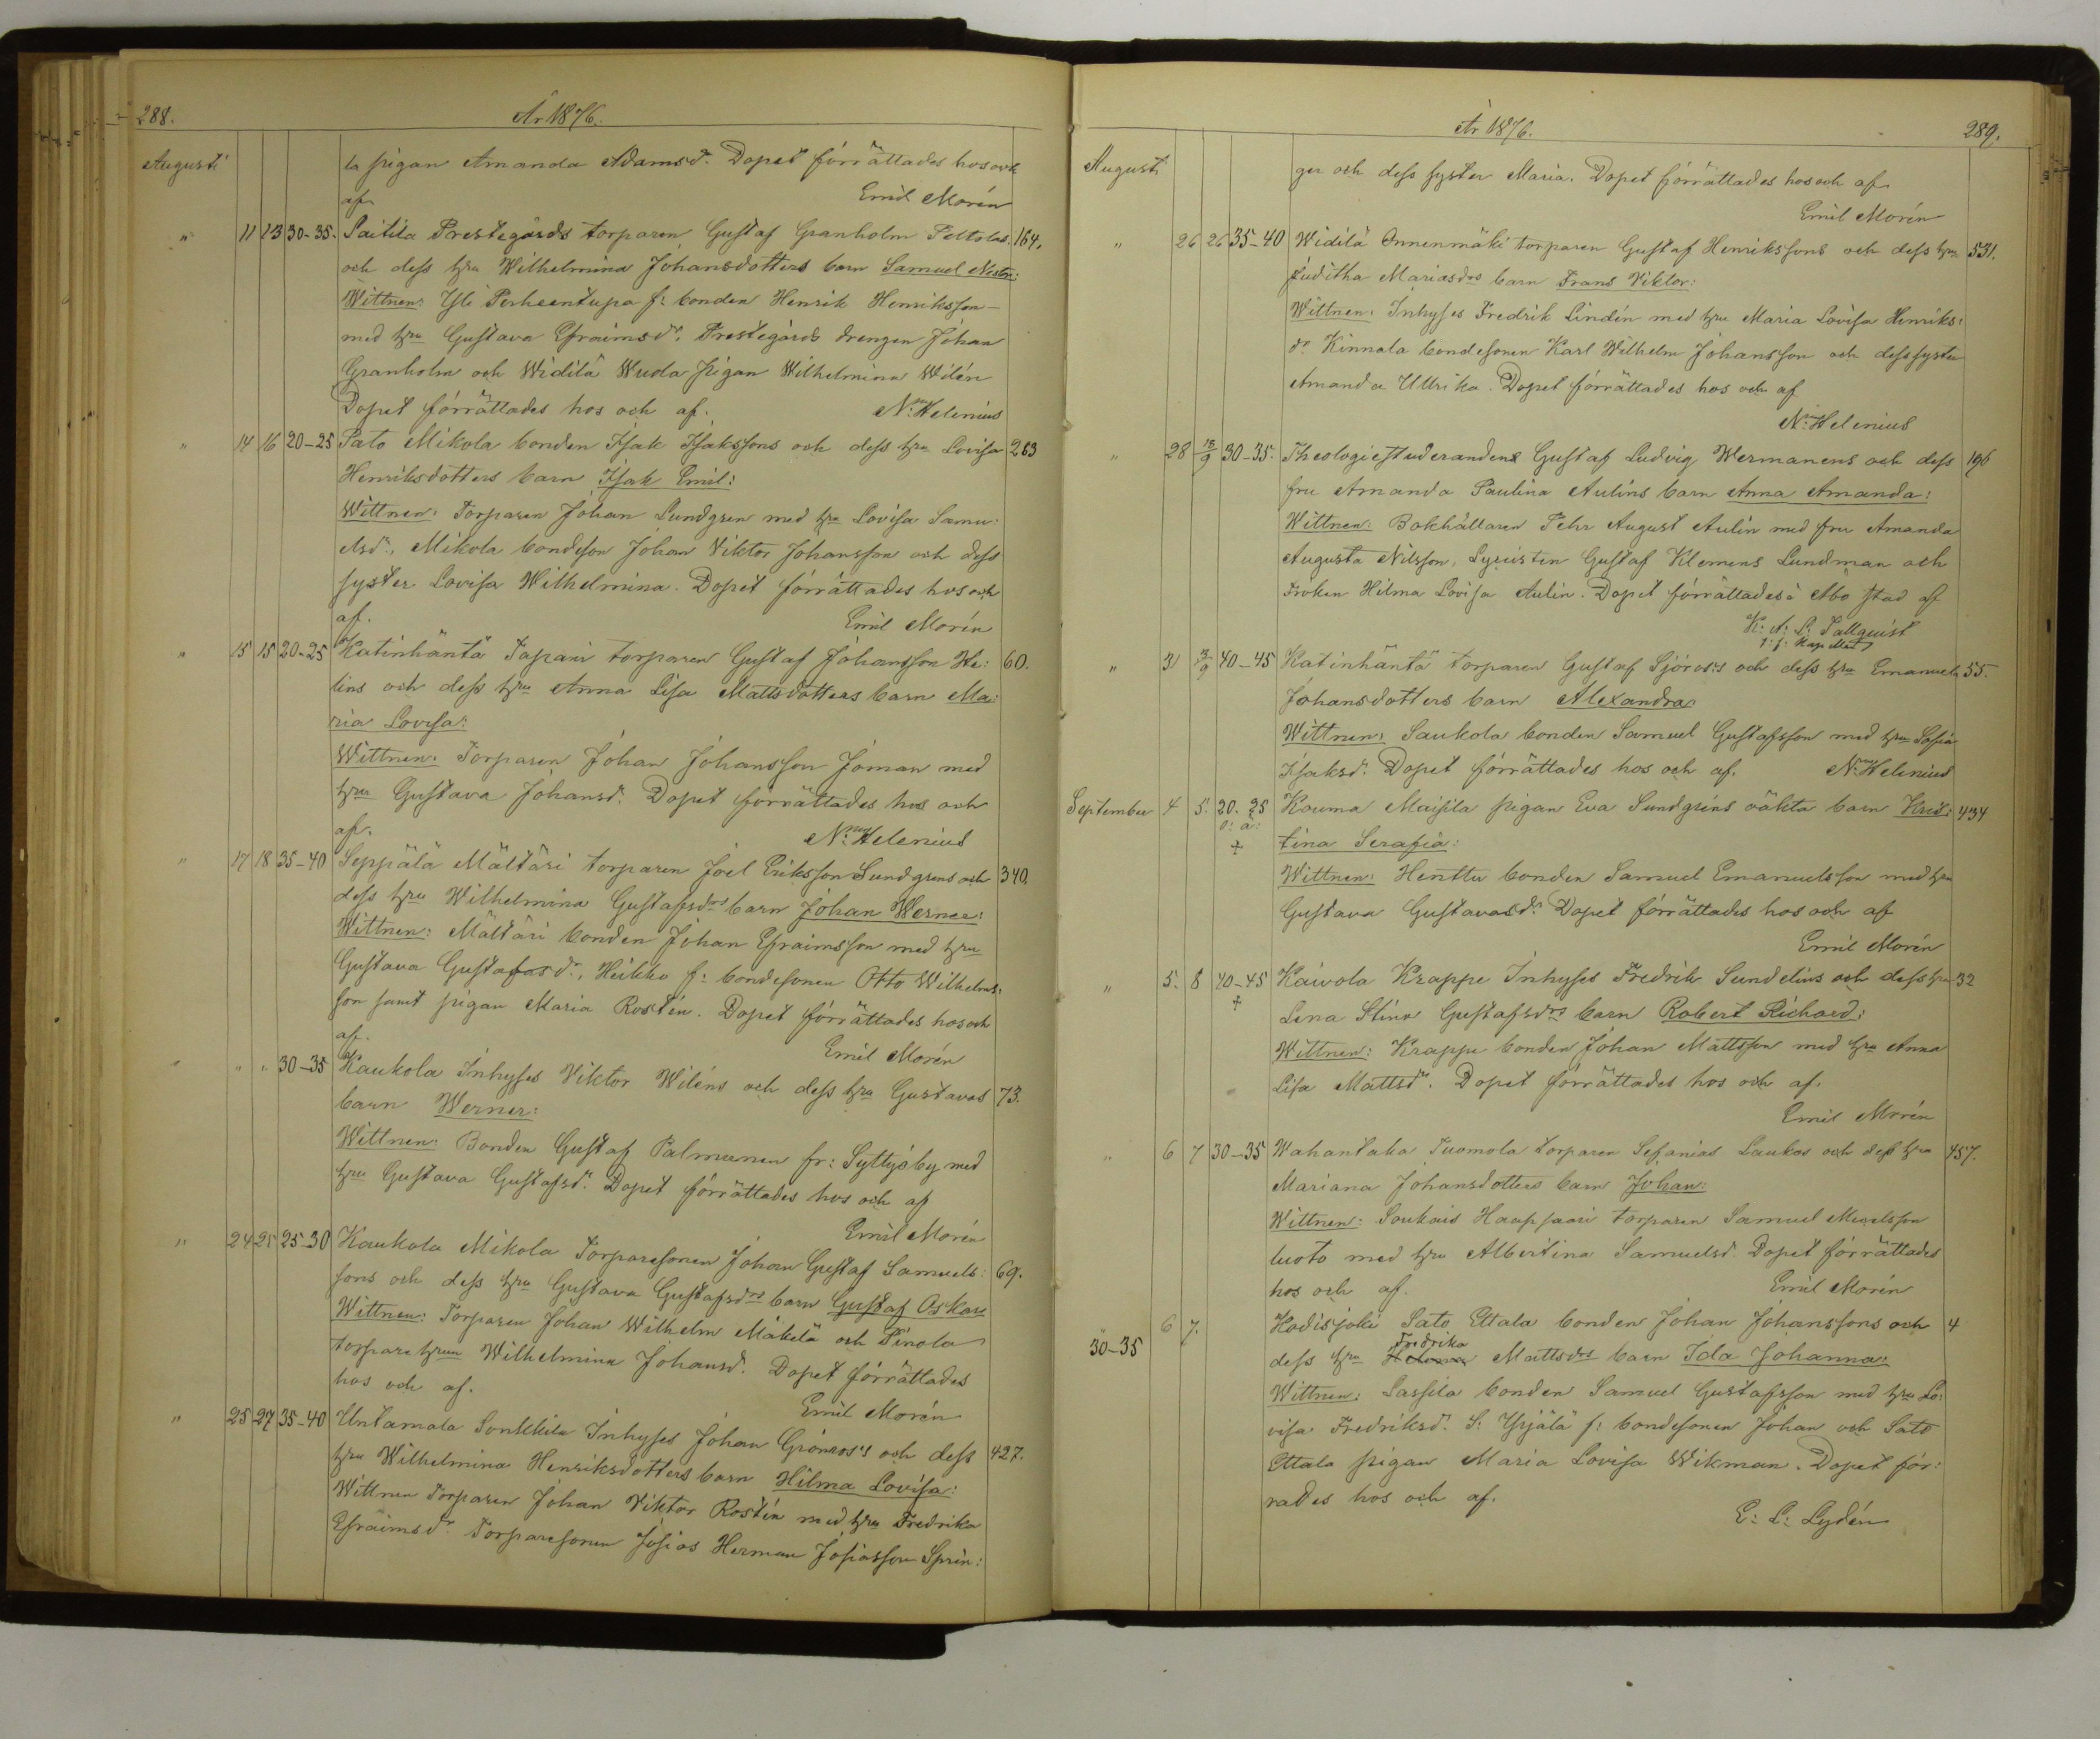 288.
År 1876.
Augusti
la pigan Amanda Adamsdr. Dopet förrättades hos och
af Emil Morén
" 11 13 30-35. Paitila Prestegårds torparen Gustaf Granholm Peltolas 164.
och dess hru Wilhelmina Johansdotters barn Samuel Nestor:
Wittnen: Yli Perheentupa f: bonden Henrik Henriksson
med hru Gustava Efraimsdr, Prestegårds drengen Johan
Granholm och Widilä Wuola pigan Wilhelmina Wilén
Dopet förrättades hos och af. N: Helenius
" 14 16 20-25 Pato Mikola bonden Isak Isakssons och dess hru Lovisa 263
Henriksdotters barn Isak Emil:
Wittnen: Torparen Johan Lundgren med hru Lovisa Samu:
elsdr, Mikola bondeson Johan Viktor Johansson och dess
syster Lovisa Wilhelmina. Dopet förrättades hos och
af. Emil Morén
" 15 15 20-25 Katinhäntä Tapani torparen Gustaf Johansson He: 60.
lins och dess hru Anna Lisa Mattsdotters barn Ma:
ria Lovisa:
Wittnen: Torparen Johan Johansson Joman med
hru Gustava Johansdr. Dopet förrättades hos och
af. N: Helenius
" 17 18 35-40 Seppälä Mältäri torparen Joel Eriksson Sundgrens och 340.
dess hru Wilhelmina Gustafsdrs barn Johan Werner:
Wittnen: Mältäri bonden Johan Efraimsson med hru
Gustava Gustafasdr, Heikko f: bondesonen Otto Wilhelms:
son samt pigan Maria Rostén. Dopet förrättades hos och
af. Emil Morén
" " " 30-35 Kaukola Inhyses Viktor Wiléns och dess hru Gustavas 73.
barn Werner:
Wittnen: Bonden Gustaf Palmunen fr: Syttysby med
hru Gustava Gustafsdr. Dopet förrättades hos och af
Emil Morén
" 24 25 25-30 Kaukola Mikola Torparesonen Johan Gustaf Samuels: 69.
sons och dess hru Gustava Gustafsdrs barn Gustaf Oskar
Wittnen: Torparen Johan Wilhelm Mäkelä och Pinola
torpare hrun Wilhelmina Johansdr. Dopet förrättades
hos och af. Emil Morén
" 25 27 35-40 Untamala Sonkkila Inhyses Johan Grönros's och dess 427.
hru Wilhelmina Henriksdotters barn Hilma Lovisa:
Wittnen Torparen Johan Viktor Rostén med hru Fredrika
Efraimsdr Torparesonen Josias Herman Josiasson Sprin:
År 1876.
289.
Augusti
ger och dess syster Maria. Dopet förrättades hos och af
Emil Morén
" 26 26 35-40 Widilä Onnenmäki torparen Gustaf Henrikssons och dess hru 531.
Juditha Mariasdrs barn Frans Viktor:
Wittnen: Inhyses Fredrik Lindén med hru Maria Lovisa Henriks:
dr Kinnala bondesonen Karl Wilhelm Johansson och dess syster
Amanda Ullrika. Dopet förrättades hos och af
N: Helenius
" 28 18/9 30-35. Theologiestuderandens Gustaf Ludvig Wermanens och dess 196
fru Amanda Paulina Auléns barn Anna Amanda:
Wittnen: Bokhållaren Pehr August Aulén med fru Amanda
Augusta Nilsson, Lyceisten Gustaf Klemens Lundman och
Fröken Hilma Lovisa Aulin. Dopet förrättades i Åbo stad af
K: A: L: Tallquist
" 31 40-45 Katinhäntä torparen Gustaf Sjöros's och dess hru Emanuela 55.
Johansdotters barn Alexandra:
Wittnen: Saukola bonden Samuel Gustafsson med hru Sofia
Isaksdr. Dopet förrättades hos och af. N: Helenius
September 4 5. 20-25 Kouma Maisila pigan Eva Sundgréns oäkta barn Kris: 434
o: ä:
+ tina Serafia:
Wittnen: Henttu bonden Samuel Emanuelsson med hru
Gustava Gustavasdr. Dopet förrättades hos och af
Emil Morén
" 5. 8 40-45 Kaivola Krappe Inhyses Fredrik Sundelins och dess hru 32
+ Lena Stina Gustafsdrs barn Robert Richard:
Wittnen: Krappe bonden Johan Mattsson med hru Anna
Lisa Mattsdr. Dopet förrättades hos och af.
Emil Morén
" 6 7 30-35 Wahantaka Tuomola torparen Sefanias Laukos och dess hru 457.
Mariana Johansdotters barn Johan:
Wittnen: Soukais Haapsaari torparen Samuel
luoto med hru Albertina Samuelsdr. Dopet förrättades
hos och af. Emil Morén
30-35 6 7. Kodisjoki Sato Ettala bonden Johan Johanssons och 4
dess hru Fredrika Mattsdrs barn Ida Johanna:
Wittnen: Sassila bonden Samuel Gustafsson med hru Lo:
visa Fredriksdr. S: Yrjälä f: bondesonen Johan och Sato
Ettala pigan Maria Lovisa Wikman. Dopet för:
rades hos och af.
E: L: Lydén